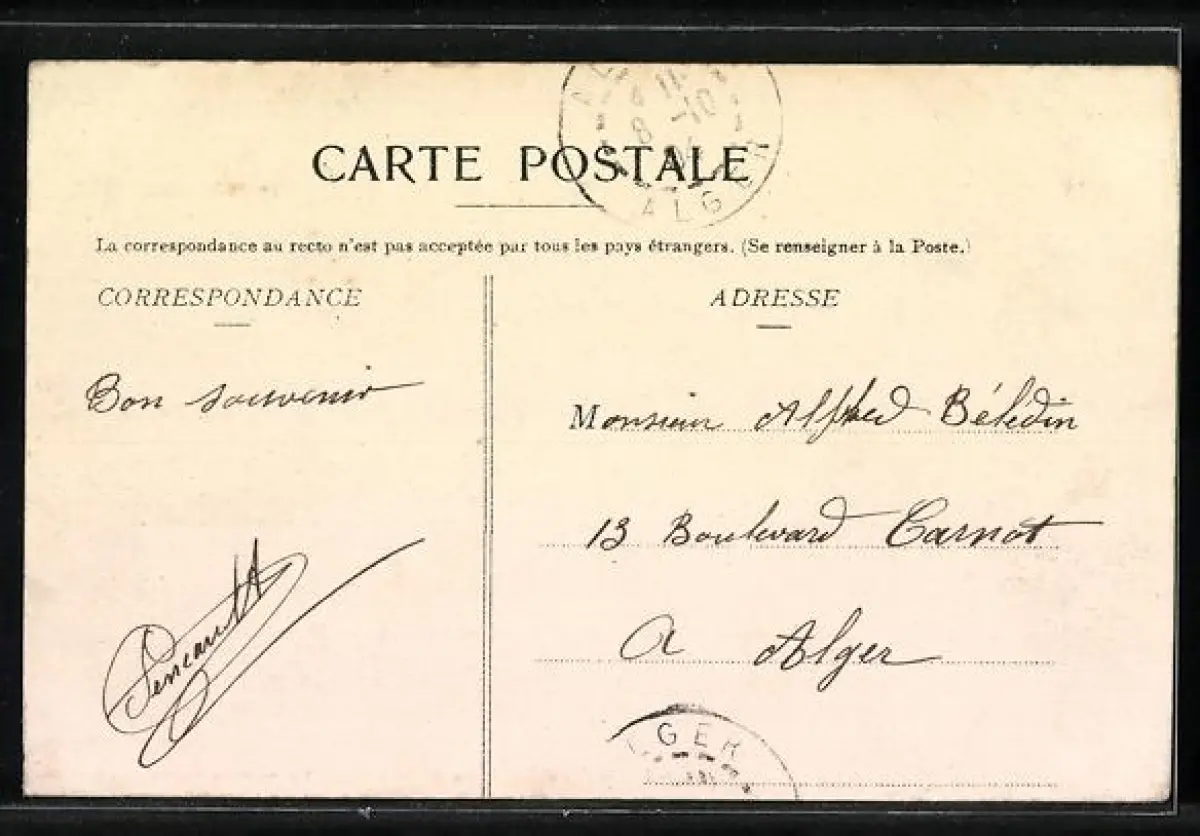 ALGER
8 -10
CARTE POSTALE
La correspondance au recto n'est pas acceptée par tous les pays étrangers. (Se renseigner à la Poste.)
CORRESPONDANCE
ADRESSE
Bon souvenir
Monsieur Alfred Bélédin
13 Boulevard Carnot
A Alger
LGER